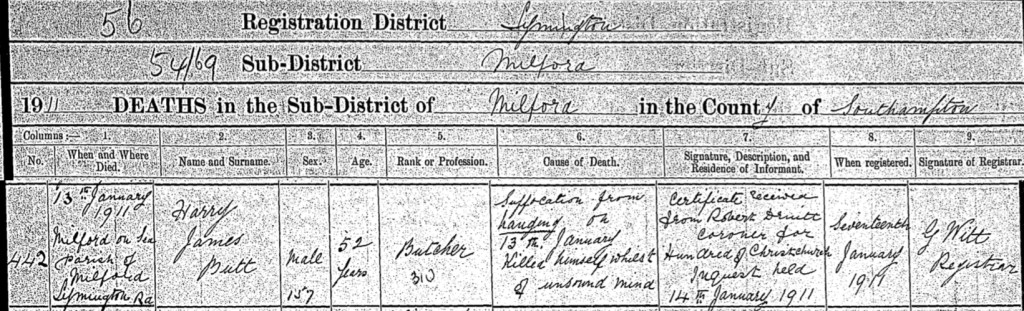 56 Registration District Lymington
54/69 Sub-District Milford
1911 DEATHS in the Sub-District of Milford in the County of Southampton
Columns :— 1. 2. 3. 4. 5. 6. 7. 8. 9.
No. When and Where Died. Name and Surname. Sex. Age. Rank or Profession. Cause of Death. Signature, Description, and Residence of Informant. When registered. Signature of Registrar.
442
13th January
1911
Milford on Sea
parish of
Milford
Lymington
Harry
James
Butt
Male
157
52
years
Butcher
310
Suffocation from
hanging on
13th January
Killed himself whilst
of unsound mind
Certificate received
from Robert Druitt
coroner for
Hundred of Christchurch
Inquest held
14th January 1911
Seventeenth
January
1911
G Witt
Registrar